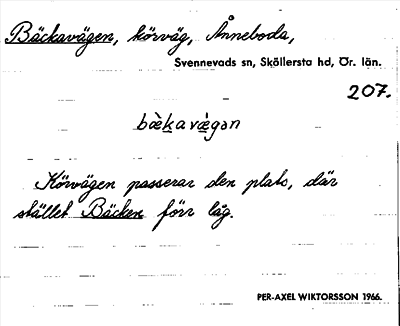 Bäckavägen, körväg, Ånneboda,
Svennevads sn, Sköllersta hd, Ör. län.
207.
bæ̀kavæ̀gən
Körvägen passerar den plats, där
stället Bäcken förr låg.
PER-AXEL WIKTORSSON 1966.